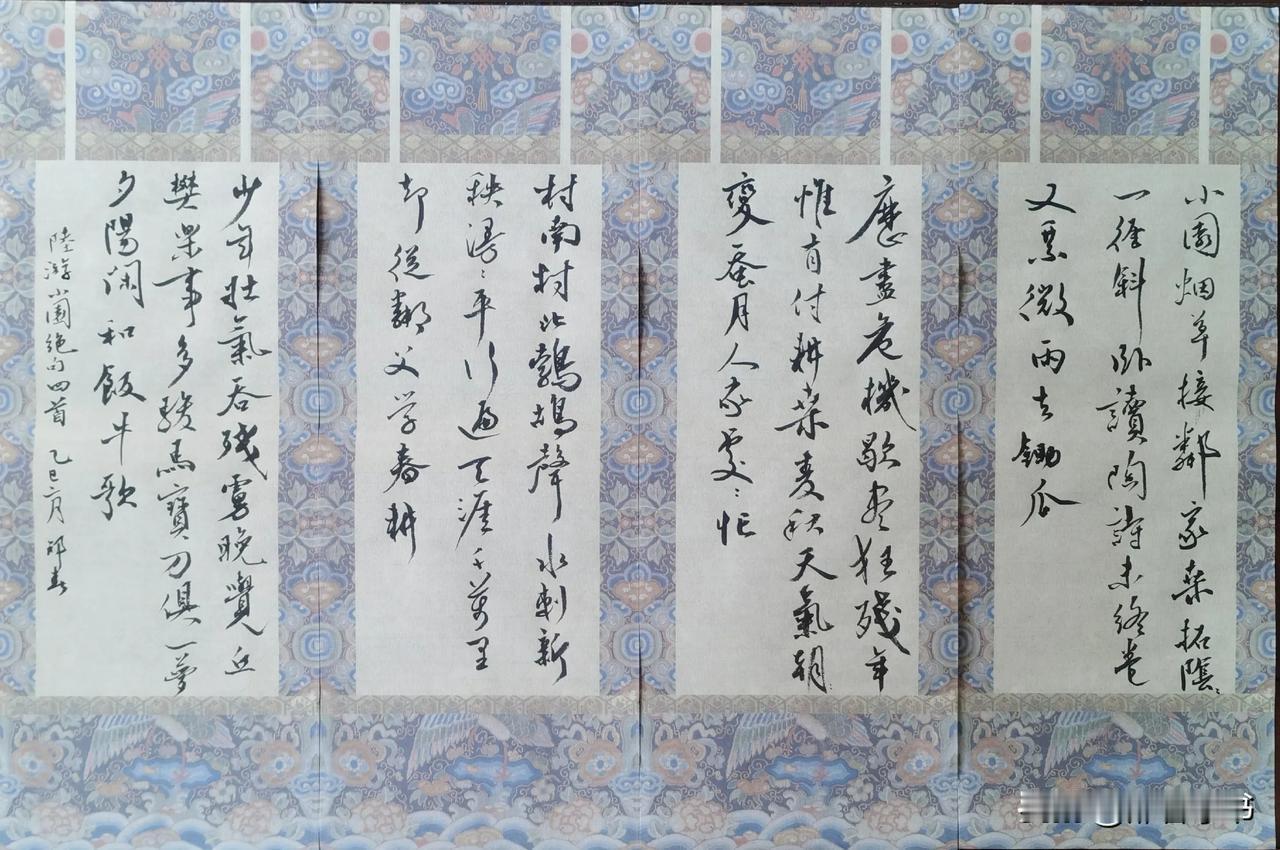 小園烟草接鄰家桑柘陰〻
一徑斜卧讀陶詩未終卷
又乘微雨去鋤瓜
歷盡危機歇盡狂殘年
惟有付耕桑麥秋天氣朝〻
變蚕月人家處〻忙
村南村北鵓鴣聲水刺新
秧漫〻平行遍天涯千萬里
却從鄰父學春耕
少年壯氣吞殘虜晚覺丘
樊樂事多駿馬寶刀俱一夢
夕陽閑和飯牛歌
陸游小園絶句四首 乙巳六月